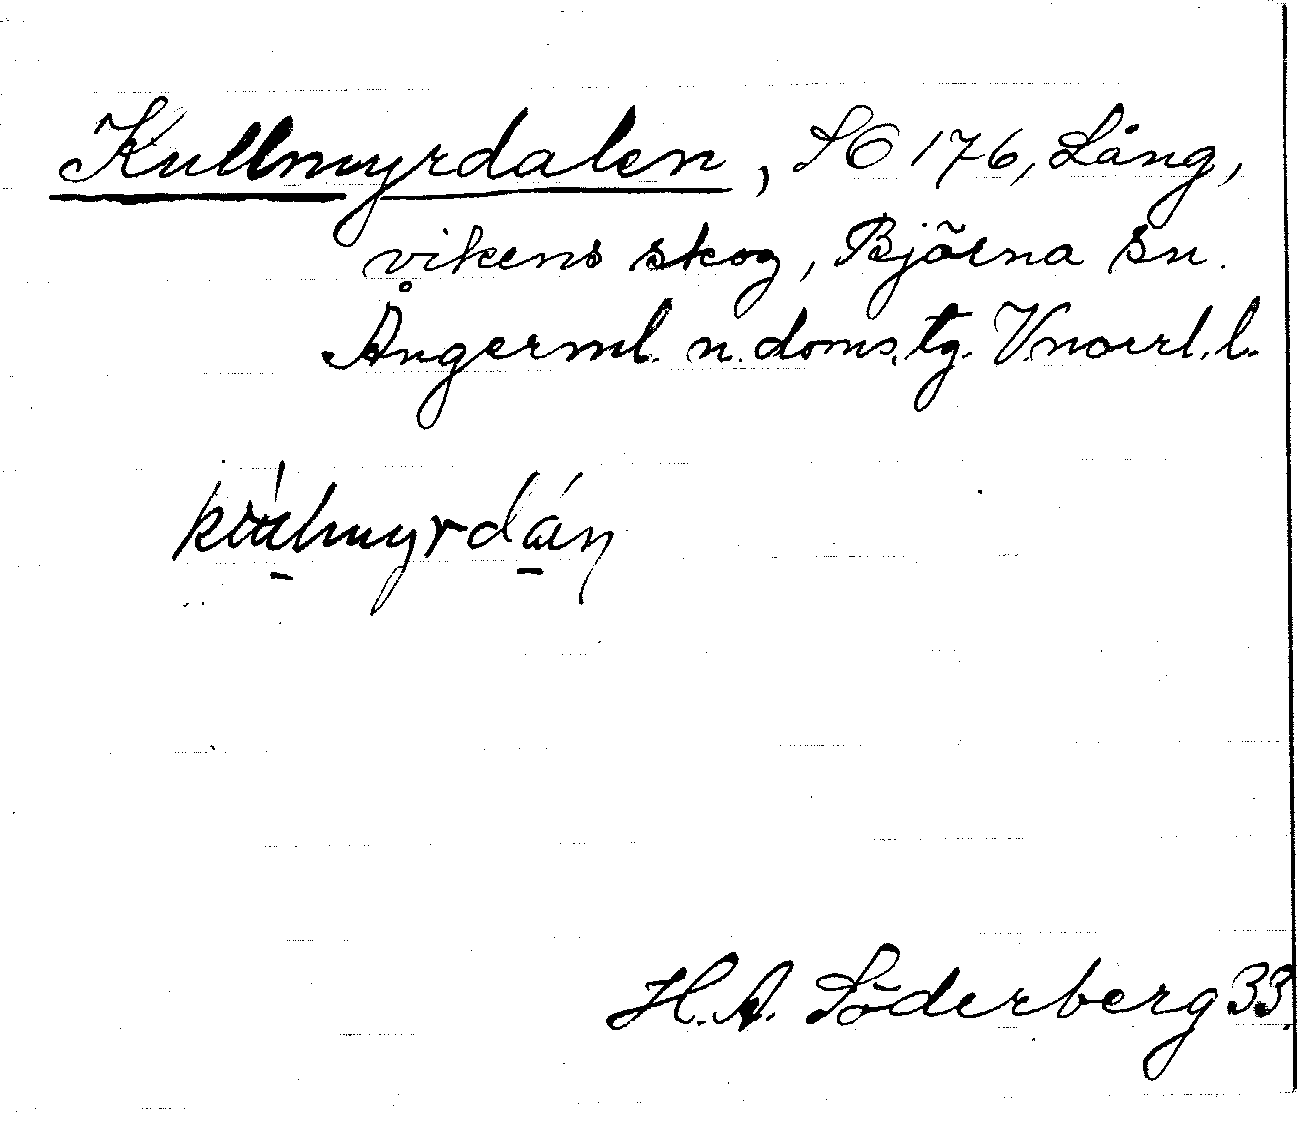 Kullmyrdalen, SO 176, Lång,
vikens skog, Björna sn.
Ångerml. n. doms. tg. Vnorrl. l.
H. A. Söderberg 33.